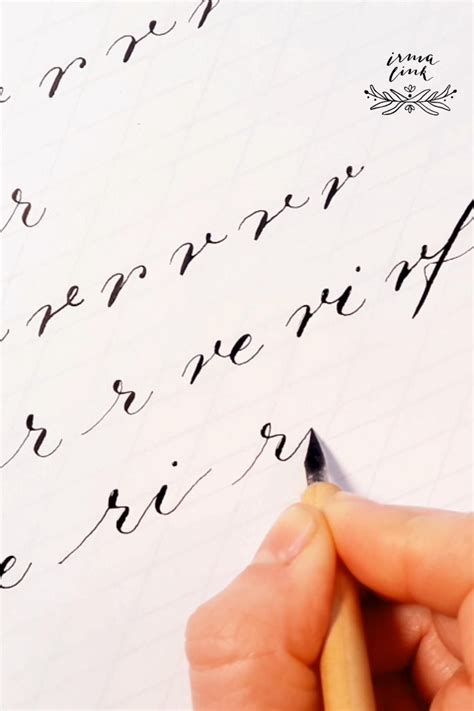 r r r r
irma
link
r
r r r r r r
r r re ri rf
e ri r